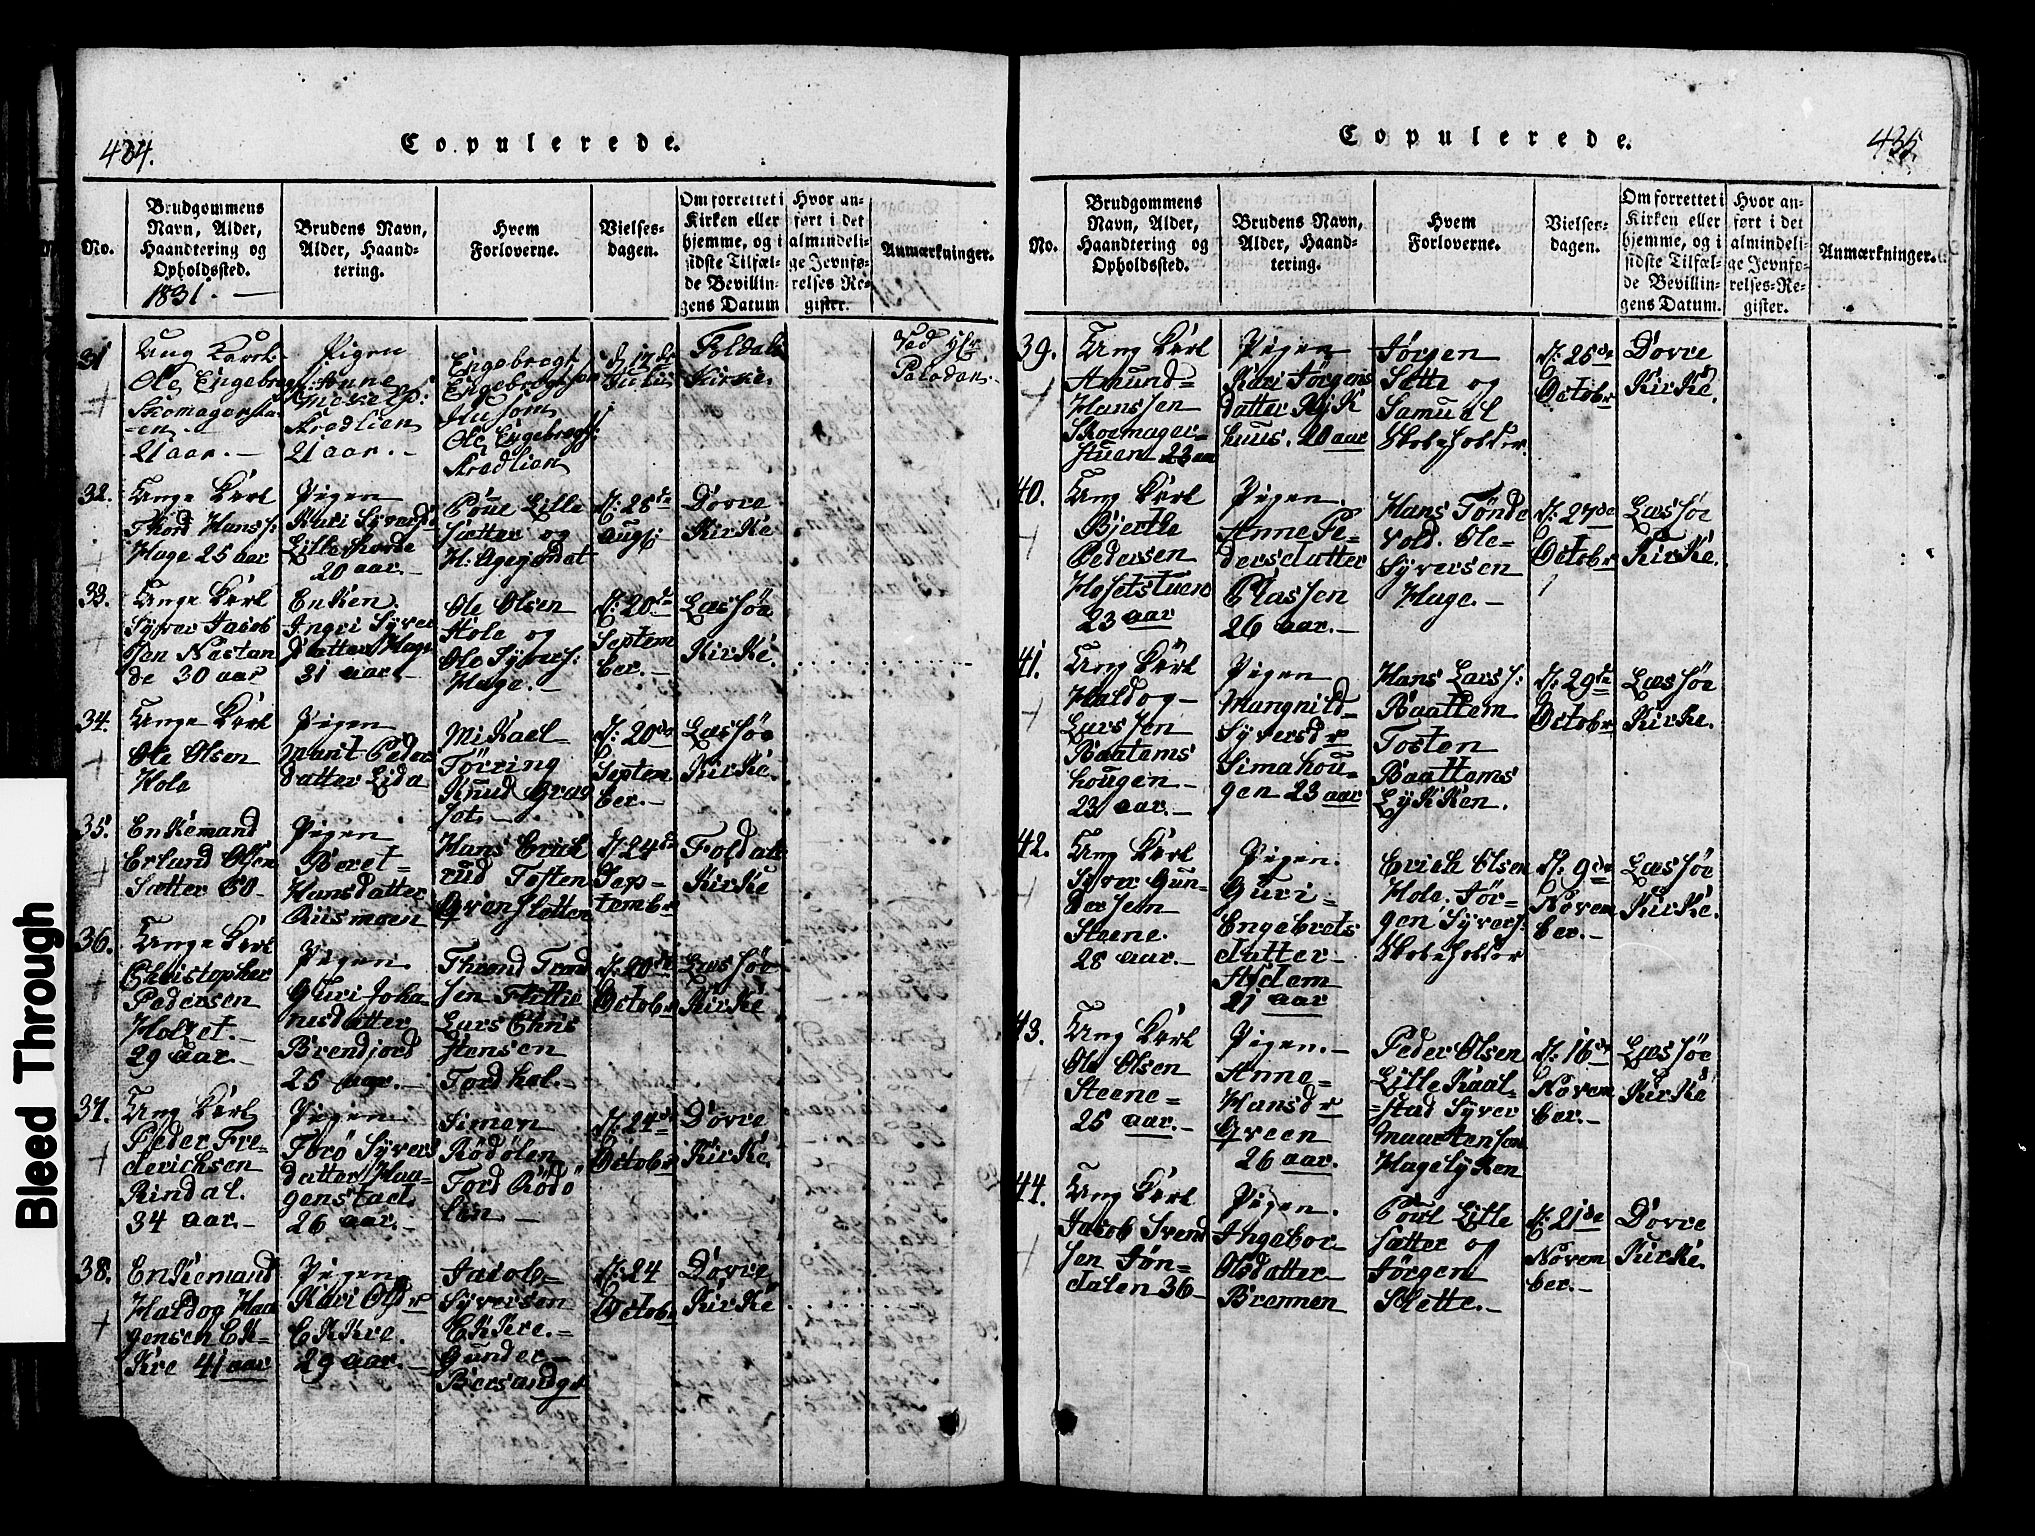 Bleed Through
434.
Copulerede.
No.
Brudgommens
Navn, Alder,
Haandtering og
Opholdssted.
1831. —
Brudens Navn,
Alder, Haand-
tering.
Hvem
Forloverne.
Vielses-
dagen.
Om forrettet i
Kirken eller
hjemme, og i
sidste Tilfæl-
de Bevillin-
gens Datum
Hvor an-
ført i det
almindeli-
ge Jevnfø-
relses-Re-
gister.
Anmærkninger.
31
Ung Karl
Ole Engebregts:
21 aar. —
Pigen
Anne
21 aar. —
Engebregt
Engebregtsen
Ole Engebregts:
Foldals
Kirke.
32.
Unge Karl
Thord Hans s:
Hage 25 aar
Pigen
Kari Syversd
20 aar. —
Poue Lille
Sætter og
D: 28de
Augs:
Dovre
Kirke
33.
Unge Karl
Syver Jacob
sen Nestan
de 30 aar
Enken
Ingri Syver
datter Hage
31 aar
Ole Olsen
Hole og
Ole Syvers:
Hage. —
D: 20de
Septem
ber. —
Læssøe
Kirke.
34.
Unge Karl
Ole Olsen
Hole
Pigen
Marit Peder
datter Lida
Mikael
Törring
Knud
D: 20de
Septem
ber. —
Læssøe
Kirke.
35.
Enkemand
Erland Olsen
Sætter 60 —
Pigen
Beret —
Hansdatter
Rusmoen
Hans
rud Tosten
Grenslötten
D: 24de
Sep-
tembr
Foldals
Kirke
36.
Unge Karl
Christopher
Pedersen
Holset. —
29 aar. —
Pigen.
Guri Joha
nnesdatter
Brendjord
25 aar. —
Thrond Trond
sen Flittie
Lars Chris
stensen
Tordhol. —
D: 20de
October
Læssøe
Kirke
37.
Ung Karl
Peder Fre-
derichsen
Rindal.
34 aar. —
Pigen
Torö Syvers
datter Haa-
genstad
26 aar. —
Simen
Rödölen
Tord Rödö
len. —
D: 24de
October
Dovre
Kirke.
38.
Enkemand
Haldog Haa
gensen Ek-
kre 41 aar
Pigen
Kari Olsdr
Ekkre.
29 aar. —
Jacob —
Syversen
Ekkre. —
Gunder —
D: 24
October
Dovre
Kirke
Copulerede.
435.
No.
Brudgommens
Navn, Alder,
Haandtering og
Opholdssted.
Brudens Navn,
Alder, Haand-
tering.
Hvem
Forloverne.
Vielses-
dagen.
Om forrettet i
Kirken eller
hjemme, og i
sidste Tilfæl-
de Bevillin-
gens Datum.
Hvor an-
ført i det
almindeli-
ge Jevnfø-
relses-Re-
gister.
Anmærkninger.
39.
Ung Karl
Amund —
Hanssen
Skoemager-
stuen 23 aar
Pigen
Kari Jörgens
datter Kjik
huus. 20 aar
Jörgen
Sætte og
Samuel
Skoleholder.
D: 25de
October
Dovre
Kirke.
40.
Ung Karl
Bierthe
Pedersen
Hosetstuen
23 aar
Pigen.
Anne Pe-
dersdatter
Plassen
26 aar. —
Hans Tönde
vold. Ole —
Syversen
Hage. —
D: 27de
October
Læssöe
Kirke.
41.
Ung Karl
Haldog —
Larssen
Baatems
hougen —
23 aar. —
Pigen
Mangnild —
Syversdr
Simahou-
gen 23 aar
Hans Lars s:
Baattem
Tosten
Baattems
Lykken.
D: 29de
October
Læssöe
Kirke.
42.
Ung Karl
Syver Gun-
dersen
Steene.
28 aar. —
Pigen.
Guri —
Engebrets
datter —
21 aar
Erich Olsen
Hole. Jör-
gen Syvers:
Skoleholder
D: 9de
Novem
ber. —
Læssöe
Kirke.
43.
Ung Karl
Ole Olsen
Steene —
25 aar. —
Pigen. —
Anne —
Hansdr
Green
26 aar. —
Peder Olsen
Lille Kaal
=stad Syver
Maartenson
Hagelyken
D: 16de
Novem
ber. —
Læssöe
Kirke
44.
Ung Karl
Jacob Svend
sen Jön-
dalen 36 —
Pigen.
Ingebor —
Olsdatter —
Brennen
Poul Lille
Sætter og
Jörgen
Slette. —
D: 21de
Novem
ber. —
Dovre
Kirke.